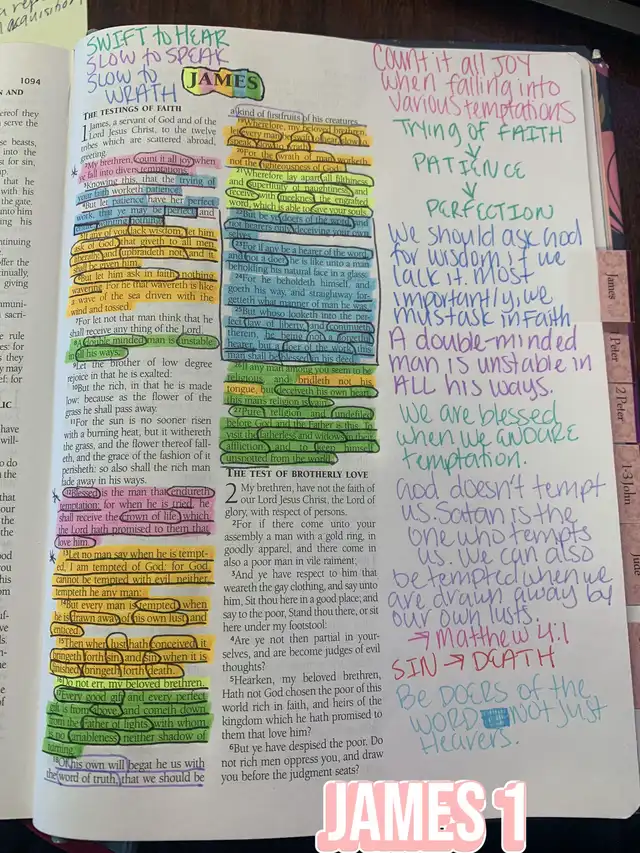 a rep
acquisition
1094
SWIFT to HEAR
SLOW to SPEAK
SLOW to
WRATH
JAMES
THE TESTINGS OF FAITH
1 James, a servant of God and of the
Lord Jesus Christ, to the twelve
tribes which are scattered abroad,
greeting.
2My brethren, count it all joy when
ye fall into divers temptations;
3Knowing this, that the trying of
your faith worketh patience.
4But let patience have her perfect
work, that ye may be perfect and
entire, wanting nothing.
5If any of you lack wisdom, let him
ask of God, that giveth to all men
liberally, and upbraideth not; and it
shall be given him.
6But let him ask in faith, nothing
wavering. For he that wavereth is like
a wave of the sea driven with the
wind and tossed.
7For let not that man think that he
shall receive any thing of the Lord.
8A double minded man is unstable
in all his ways.
9Let the brother of low degree
rejoice in that he is exalted:
10But the rich, in that he is made
low: because as the flower of the
grass he shall pass away.
11For the sun is no sooner risen
with a burning heat, but it withereth
the grass, and the flower thereof fall-
eth, and the grace of the fashion of it
perisheth: so also shall the rich man
fade away in his ways.
12Blessed is the man that endureth
temptation: for when he is tried, he
shall receive the crown of life, which
the Lord hath promised to them that
love him.
13Let no man say when he is tempt-
ed, I am tempted of God: for God
cannot be tempted with evil, neither
tempteth he any man:
14But every man is tempted, when
he is drawn away of his own lust, and
enticed.
15Then when lust hath conceived, it
bringeth forth sin: and sin, when it is
finished, bringeth forth death.
16Do not err, my beloved brethren.
17Every good gift and every perfect
gift is from above, and cometh down
from the Father of lights, with whom
is no variableness, neither shadow of
turning.
18Of his own will begat he us with
the word of truth, that we should be
a kind of firstfruits of his creatures.
19Wherefore, my beloved brethren,
let every man be swift to hear, slow to
speak, slow to wrath:
20For the wrath of man worketh
not the righteousness of God.
21Wherefore lay apart all filthiness
and superfluity of naughtiness, and
receive with meekness the engrafted
word, which is able to save your souls.
22But be ye doers of the word, and
not hearers only, deceiving your own
selves.
23For if any be a hearer of the word,
and not a doer, he is like unto a man
beholding his natural face in a glass:
24For he beholdeth himself, and
goeth his way, and straightway for-
getteth what manner of man he was.
25But whoso looketh into the per-
fect law of liberty, and continueth
therein, he being not a forgetful
hearer, but a doer of the work, this
man shall be blessed in his deed.
26If any man among you seem to be
religious, and bridleth not his
tongue, but deceiveth his own heart,
this man's religion is vain.
27Pure religion and undefiled
before God and the Father is this, To
visit the fatherless and widows in their
affliction, and to keep himself
unspotted from the world.
THE TEST OF BROTHERLY LOVE
2 My brethren, have not the faith of
our Lord Jesus Christ, the Lord of
glory, with respect of persons.
2For if there come unto your
assembly a man with a gold ring, in
goodly apparel, and there come in
also a poor man in vile raiment;
3And ye have respect to him that
weareth the gay clothing, and say unto
him, Sit thou here in a good place; and
say to the poor, Stand thou there, or sit
here under my footstool:
4Are ye not then partial in your-
selves, and are become judges of evil
thoughts?
5Hearken, my beloved brethren,
Hath not God chosen the poor of this
world rich in faith, and heirs of the
kingdom which he hath promised to
them that love him?
6But ye have despised the poor. Do
not rich men oppress you, and draw
you before the judgment seats?
Count it all JOY
when falling into
various temptations
Trying of FAITH
PATIENCE
PERFECTION
We should ask God
for wisdom if we
lack it. Most
importantly, we
must ask in Faith
A double-minded
man is unstable in
ALL his ways.
We are blessed
when we ENDURE
temptation.
God doesn't tempt
us. Satan is the
one who tempts
us. We can also
be tempted when we
are drawn away by
our own lusts.
→ Matthew 4:1
SIN → DEATH
Be DOERS of the
WORD NOT just
Hearers.
James
1 Peter
2 Peter
1-3 John
Jude
JAMES 1